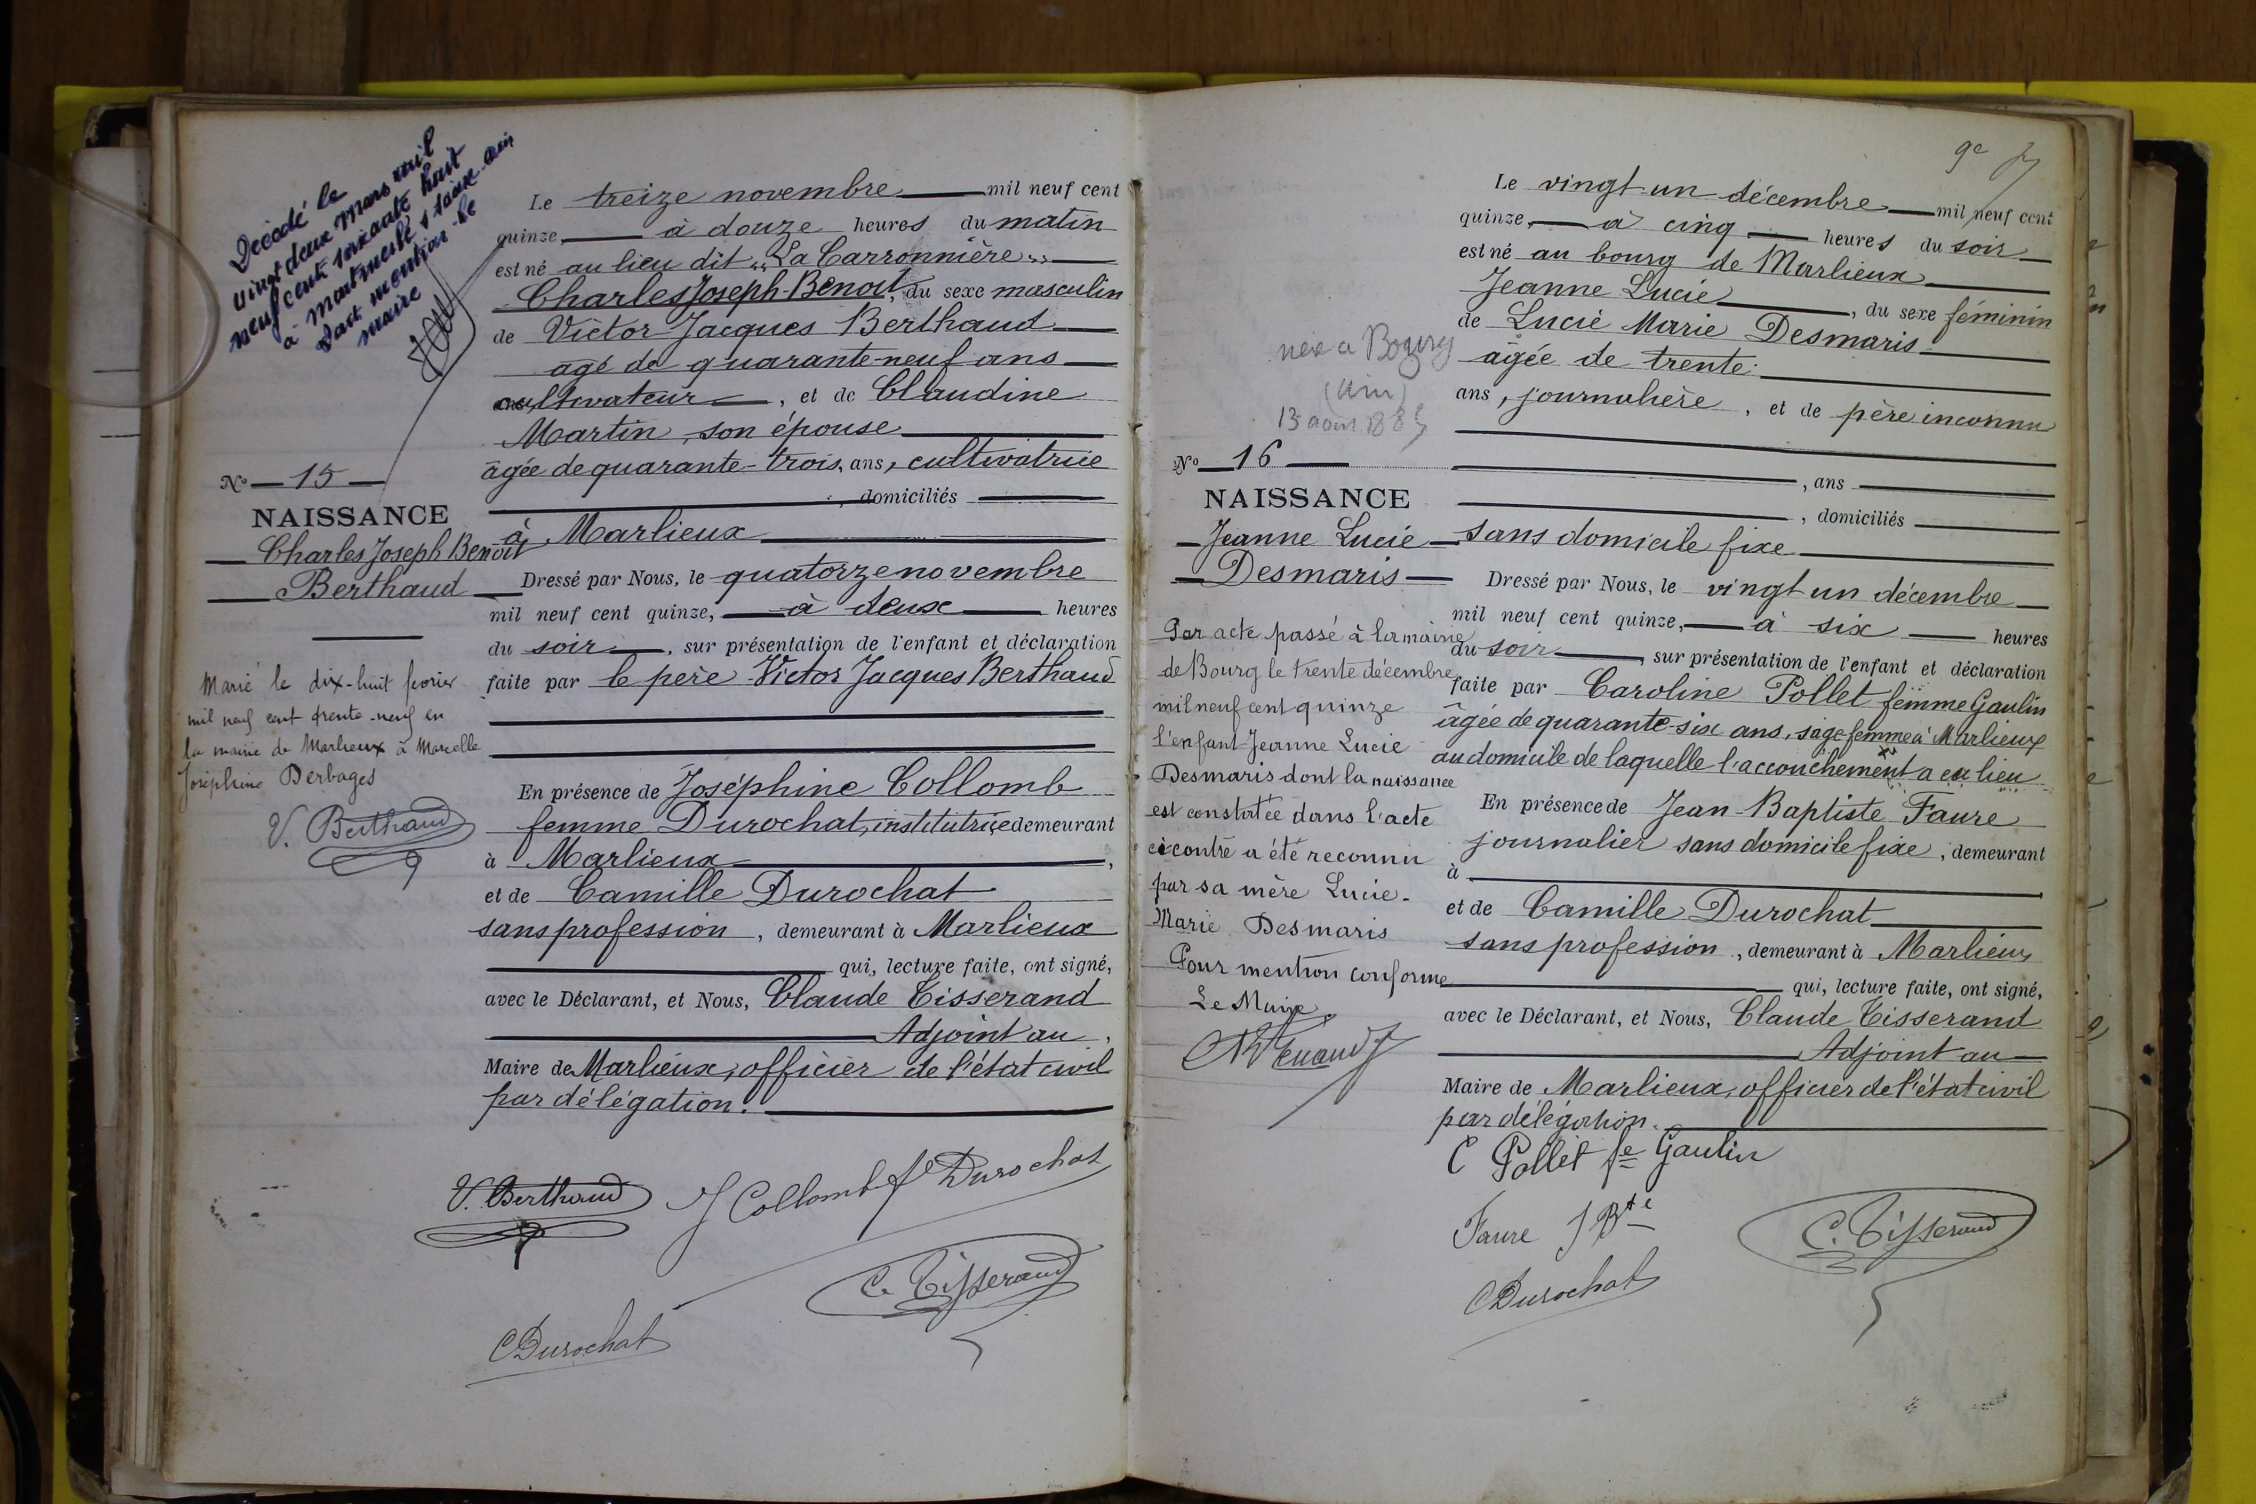 Décédé le
vingt deux Mars mil
neuf cent soixante huit
à
Dont mention. Le
maire
Le treize novembre mil neuf cent
quinze, à douze heures du matin
est né au lieu dit "La Carronnière"
Charles Joseph-Benoit, du sexe masculin
de Victor Jacques Berthaud
âgé de quarante-neuf ans
cultivateur, et de Claudine
Martin, son épouse
âgée de quarante-trois, ans, cultivatrice
, domiciliés
à Marlieux
No 15
NAISSANCE
Charles Joseph Benoit
Berthaud
Dressé par Nous, le quatorze novembre
mil neuf cent quinze, à deux heures
du soir, sur présentation de l'enfant et déclaration
faite par le père Victor Jacques Berthaud
Marié le dix-huit février
mil neuf cent trente-neuf en
la mairie de Marlieux à Marcelle
Joséphine Derbages
V. Berthaud
En présence de Joséphine Collomb
femme Durochat, institutrice demeurant
à Marlieux,
et de Camille Durochat
sans profession, demeurant à Marlieux
qui, lecture faite, ont signé,
avec le Déclarant, et Nous, Claude Tisserand
Adjoint au,
Maire de Marlieux, officier de l'état civil
par délégation.
V. Berthaud J Collomb fe Durochat
C. Tisserand
C Durochat
9e
Le vingt-un décembre mil neuf cent
quinze, à cinq heures du soir
est né au bourg de Marlieux
Jeanne Lucie, du sexe féminin
de Lucie Marie Desmaris
âgée de trente
ans, journalière, et de père inconnu
, ans
, domiciliés
sans domicile fixe
née à Bourg
(Ain)
13 août
No 16
NAISSANCE
Jeanne Lucie
Desmaris
Dressé par Nous, le vingt un décembre
mil neuf cent quinze, à six heures
du soir, sur présentation de l'enfant et déclaration
faite par Caroline Pollet femme Gaulin
âgée de quarante-six ans, sage-femme à Marlieux
au domicile de laquelle l'accouchement a eu lieu
Par acte passé à la mairie
de Bourg le trente décembre
mil neuf cent quinze
l'enfant Jeanne Lucie
Desmaris dont la naissance
est constatée dans l'acte
ci contre a été reconnu
par sa mère Lucie-
Marie Desmaris
Pour mention conforme
Le Maire
En présence de Jean-Baptiste Faure
journalier sans domicile fixe, demeurant
à
et de Camille Durochat
sans profession, demeurant à Marlieux
qui, lecture faite, ont signé,
avec le Déclarant, et Nous, Claude Tisserand
Adjoint au
Maire de Marlieux, officier de l'état civil
par délégation.
C Pollet fe Gaulin
Faure J Bte
C. Tisserand
C Durochat